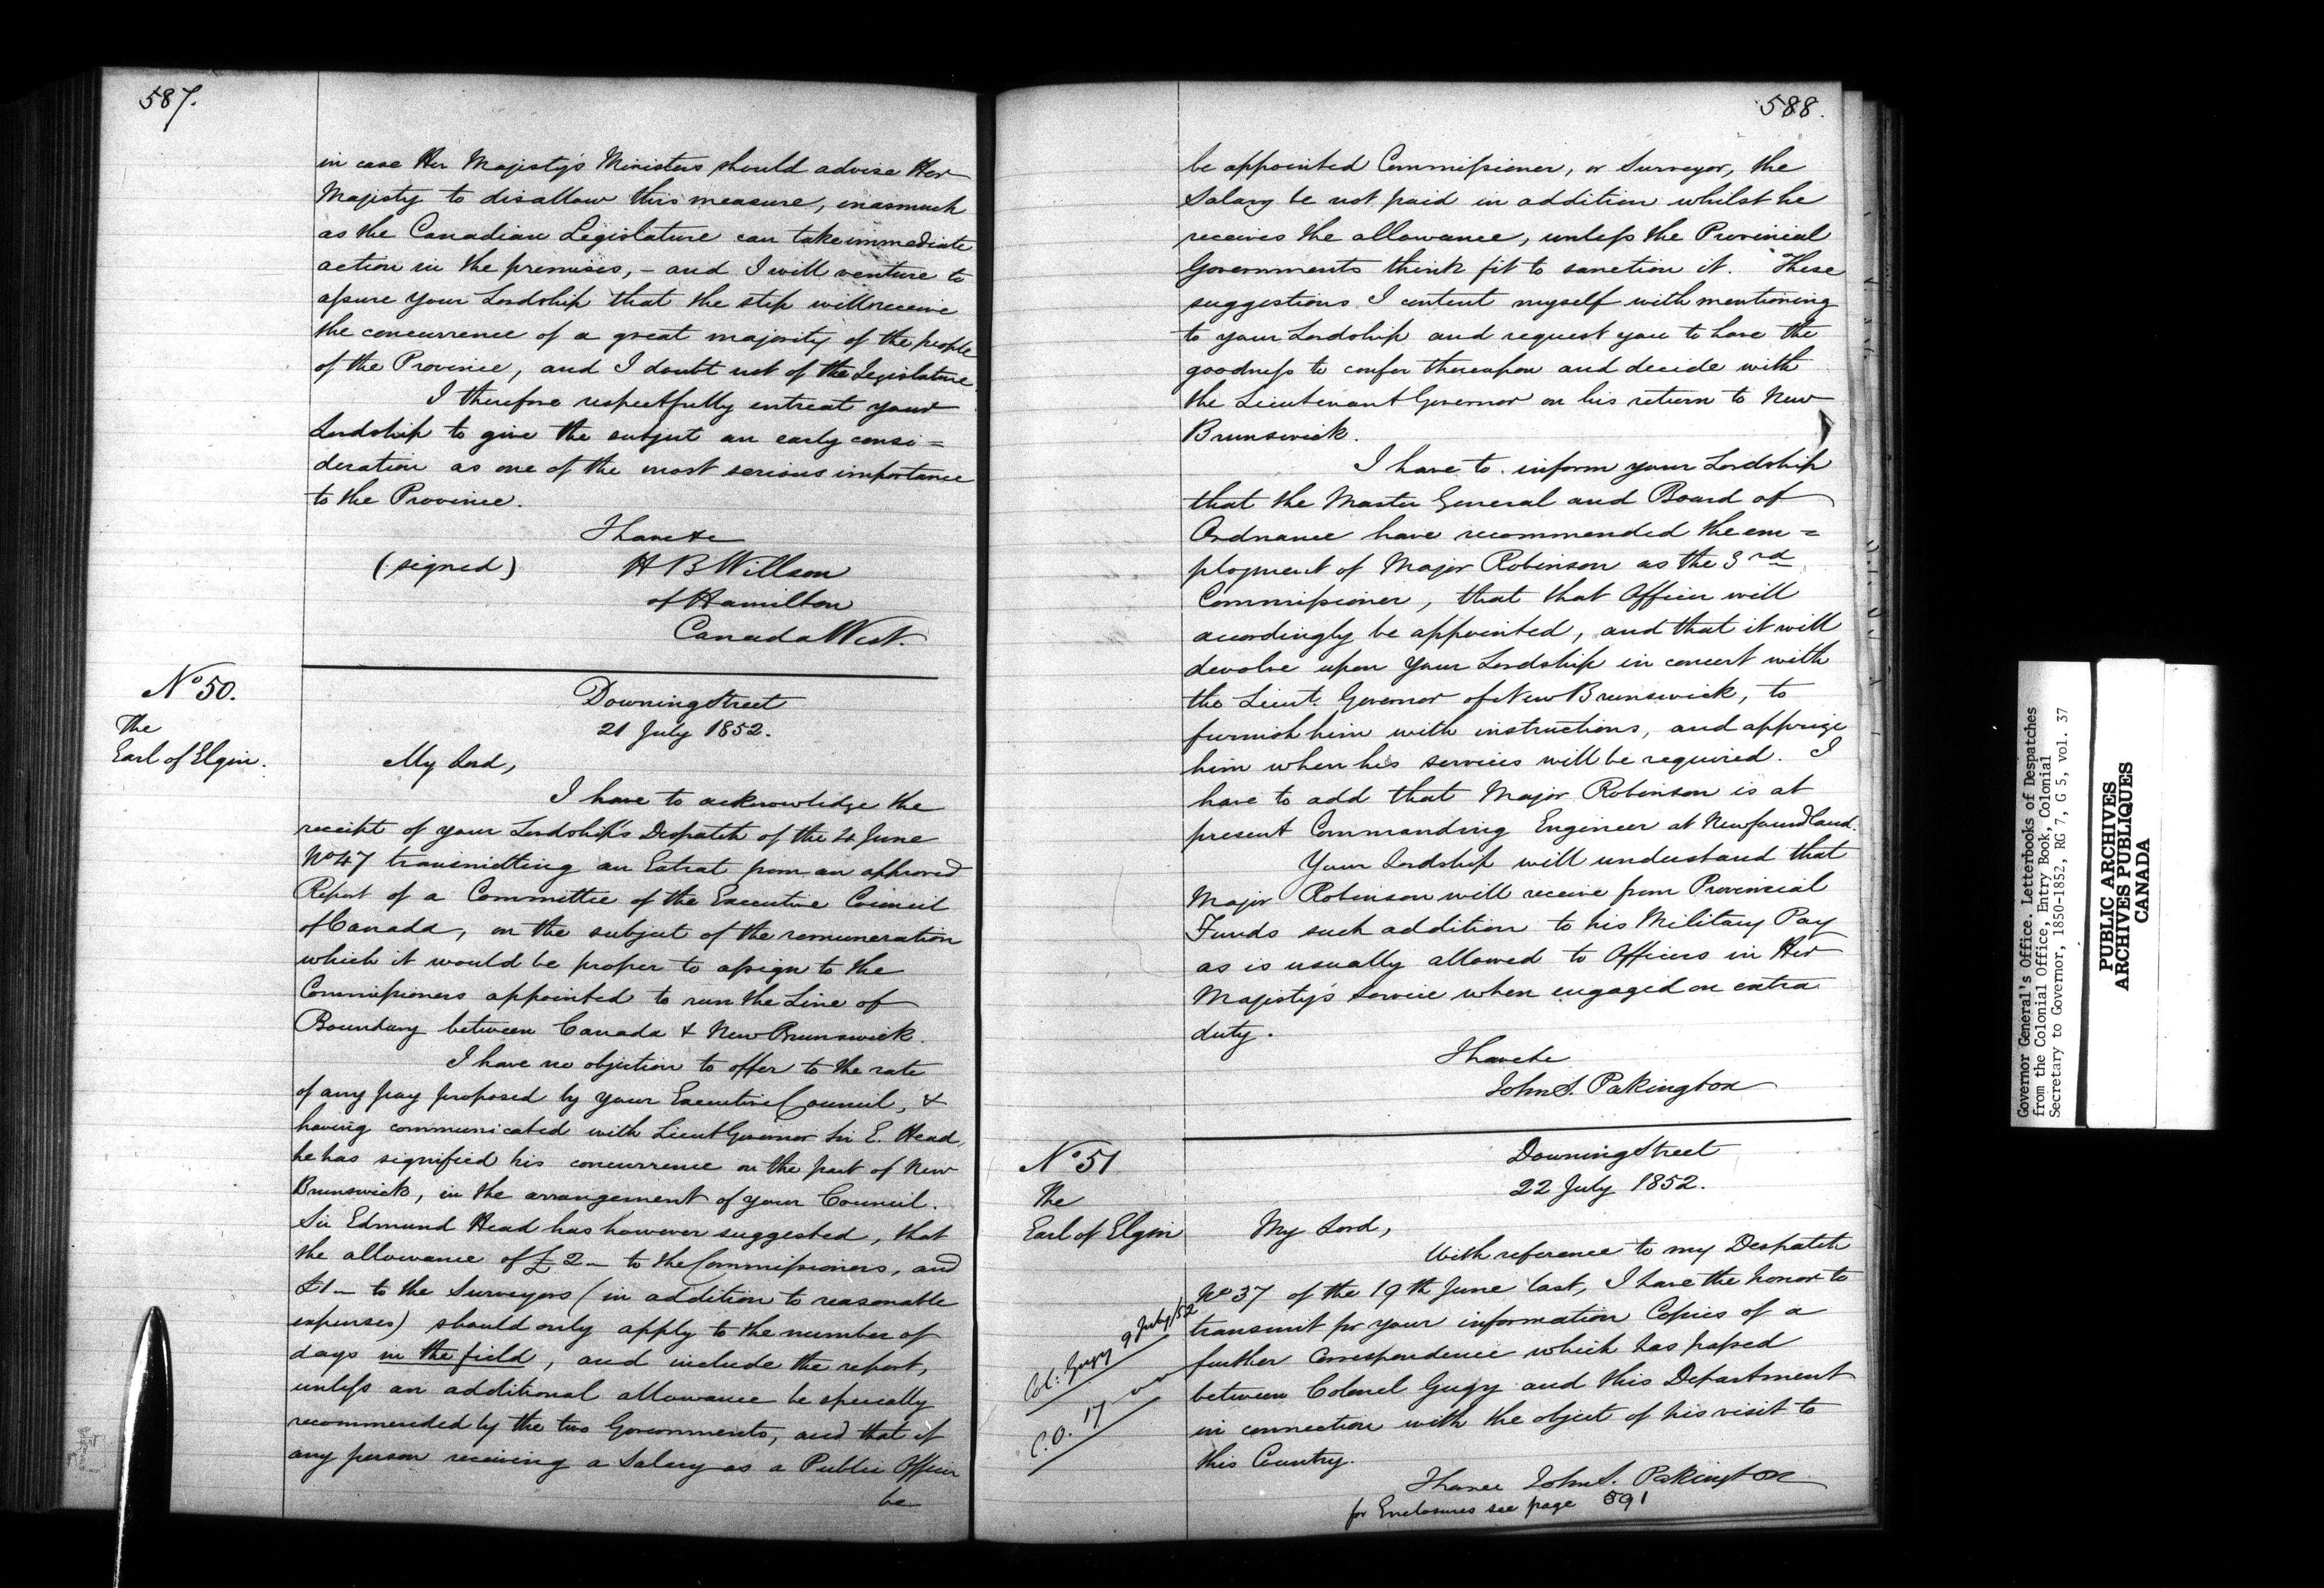 587.
in case Her Majesty's Ministers should advise Her
Majesty to disallow this measure, inasmuch
as the Canadian Legislature can take immediate
action in the premises, - and I will venture to
assure your Lordship that the step will receive
the concurrence of a great majority of the people
of the Province, and I doubt not of the Legislature
I therefore respectfully entreat your
Lordship to give the subject an early consi=
deration as one of the most serious importance
to the Province.
I have &c
(signed) H B Willson
of Hamilton
Canada West.
No 50.
The
Earl of Elgin.
Downing Street
21 July 1852.
My Lord,
I have to acknowledge the
receipt of your Lordship's Despatch of the 4 June
No 47 transmitting an Extrat from an approved
Report of a Committee of the Executive Council
of Canada, on the subject of the remuneration
which it would be proper to assign to the
Commissioners appointed to run the Line of
Boundary between Canada & New Brunswick.
I have no objection to offer to the rate
of any pay proposed by your Executive Council, &
having communicated with Lieut Governor Sir E. Head,
he has signified his concurrence on the part of New
Brunswick, in the arrangement of your Council.
Sir Edmund Head has however suggested, that
the allowance of £2 - to the Commissioners, and
£1 - to the Surveyors (in addition to reasonable
expenses) should only apply to the number of
days in the field, and include the report,
unless an additional allowance be specially
recommended by the two Governments, and that if
any person receiving a Salary as a Public Officer
be
588.
be appointed Commissioner, or Surveyor, the
Salary be not paid in addition whilst he
receives the allowance, unless the Provincial
Governments think fit to sanction it. These
suggestions I content myself with mentioning
to your Lordship and request you to have the
goodness to confer thereupon and decide with
the Lieutenant Governor on his return to New
Brunswick.
I have to inform your Lordship
that the Master General and Board of
Ordnance have recommended the em=
ployment of Major Robinson as the 3rd
Commissioner, that that Officer will
accordingly be appointed, and that it will
devolve upon your Lordship in concert with
the Lieut. Governor of New Brunswick, to
furnish him with instructions, and apprize
him when his services will be required. I
have to add that Major Robinson is at
present Commanding Engineer at Newfoundland.
Your Lordship will understand that
Major Robinson will receive from Provincial
Funds such addition to his Military Pay
as is usually allowed to Officers in Her
Majesty's Service when engaged on extra
duty.
I have &c
John S. Pakington
No 51
The
Earl of Elgin
Downing Street
22 July 1852.
My Lord,
With reference to my Despatch
No 37 of the 19th June last, I have the honor to
transmit for your information Copies of a
further Correspondence which has passed
between Colonel Gugy and this Department
in connection with the object of his visit to
this Country.
Col: Gugy 9 July/52
C.O. 17
I have &c John S. Pakington
for Enclosures see page 591
Governor General's Office. Letterbooks of Despatches
from the Colonial Office, Entry Book, Colonial
Secretary to Governor, 1850-1852, RG 7, G 5, vol. 37
PUBLIC ARCHIVES
ARCHIVES PUBLIQUES
CANADA